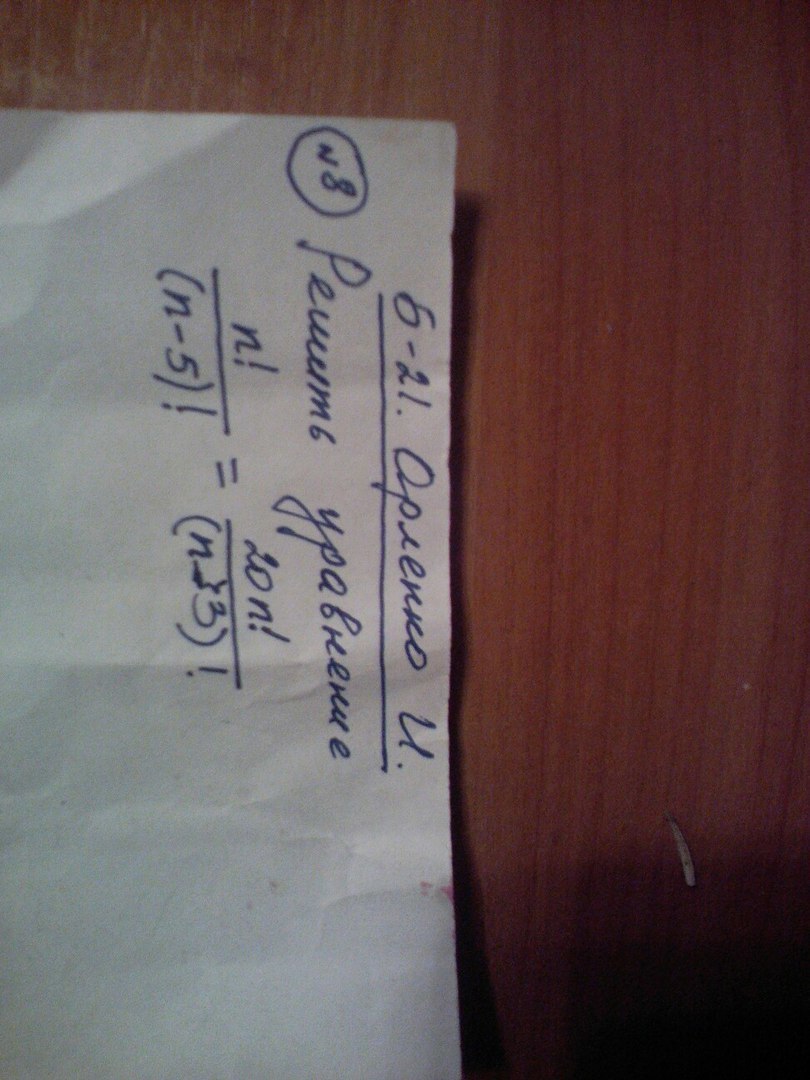 Б-21. Орленко И.
№8 Решить уравнение
n!/(n-5)! = 20n!/(n-3)!